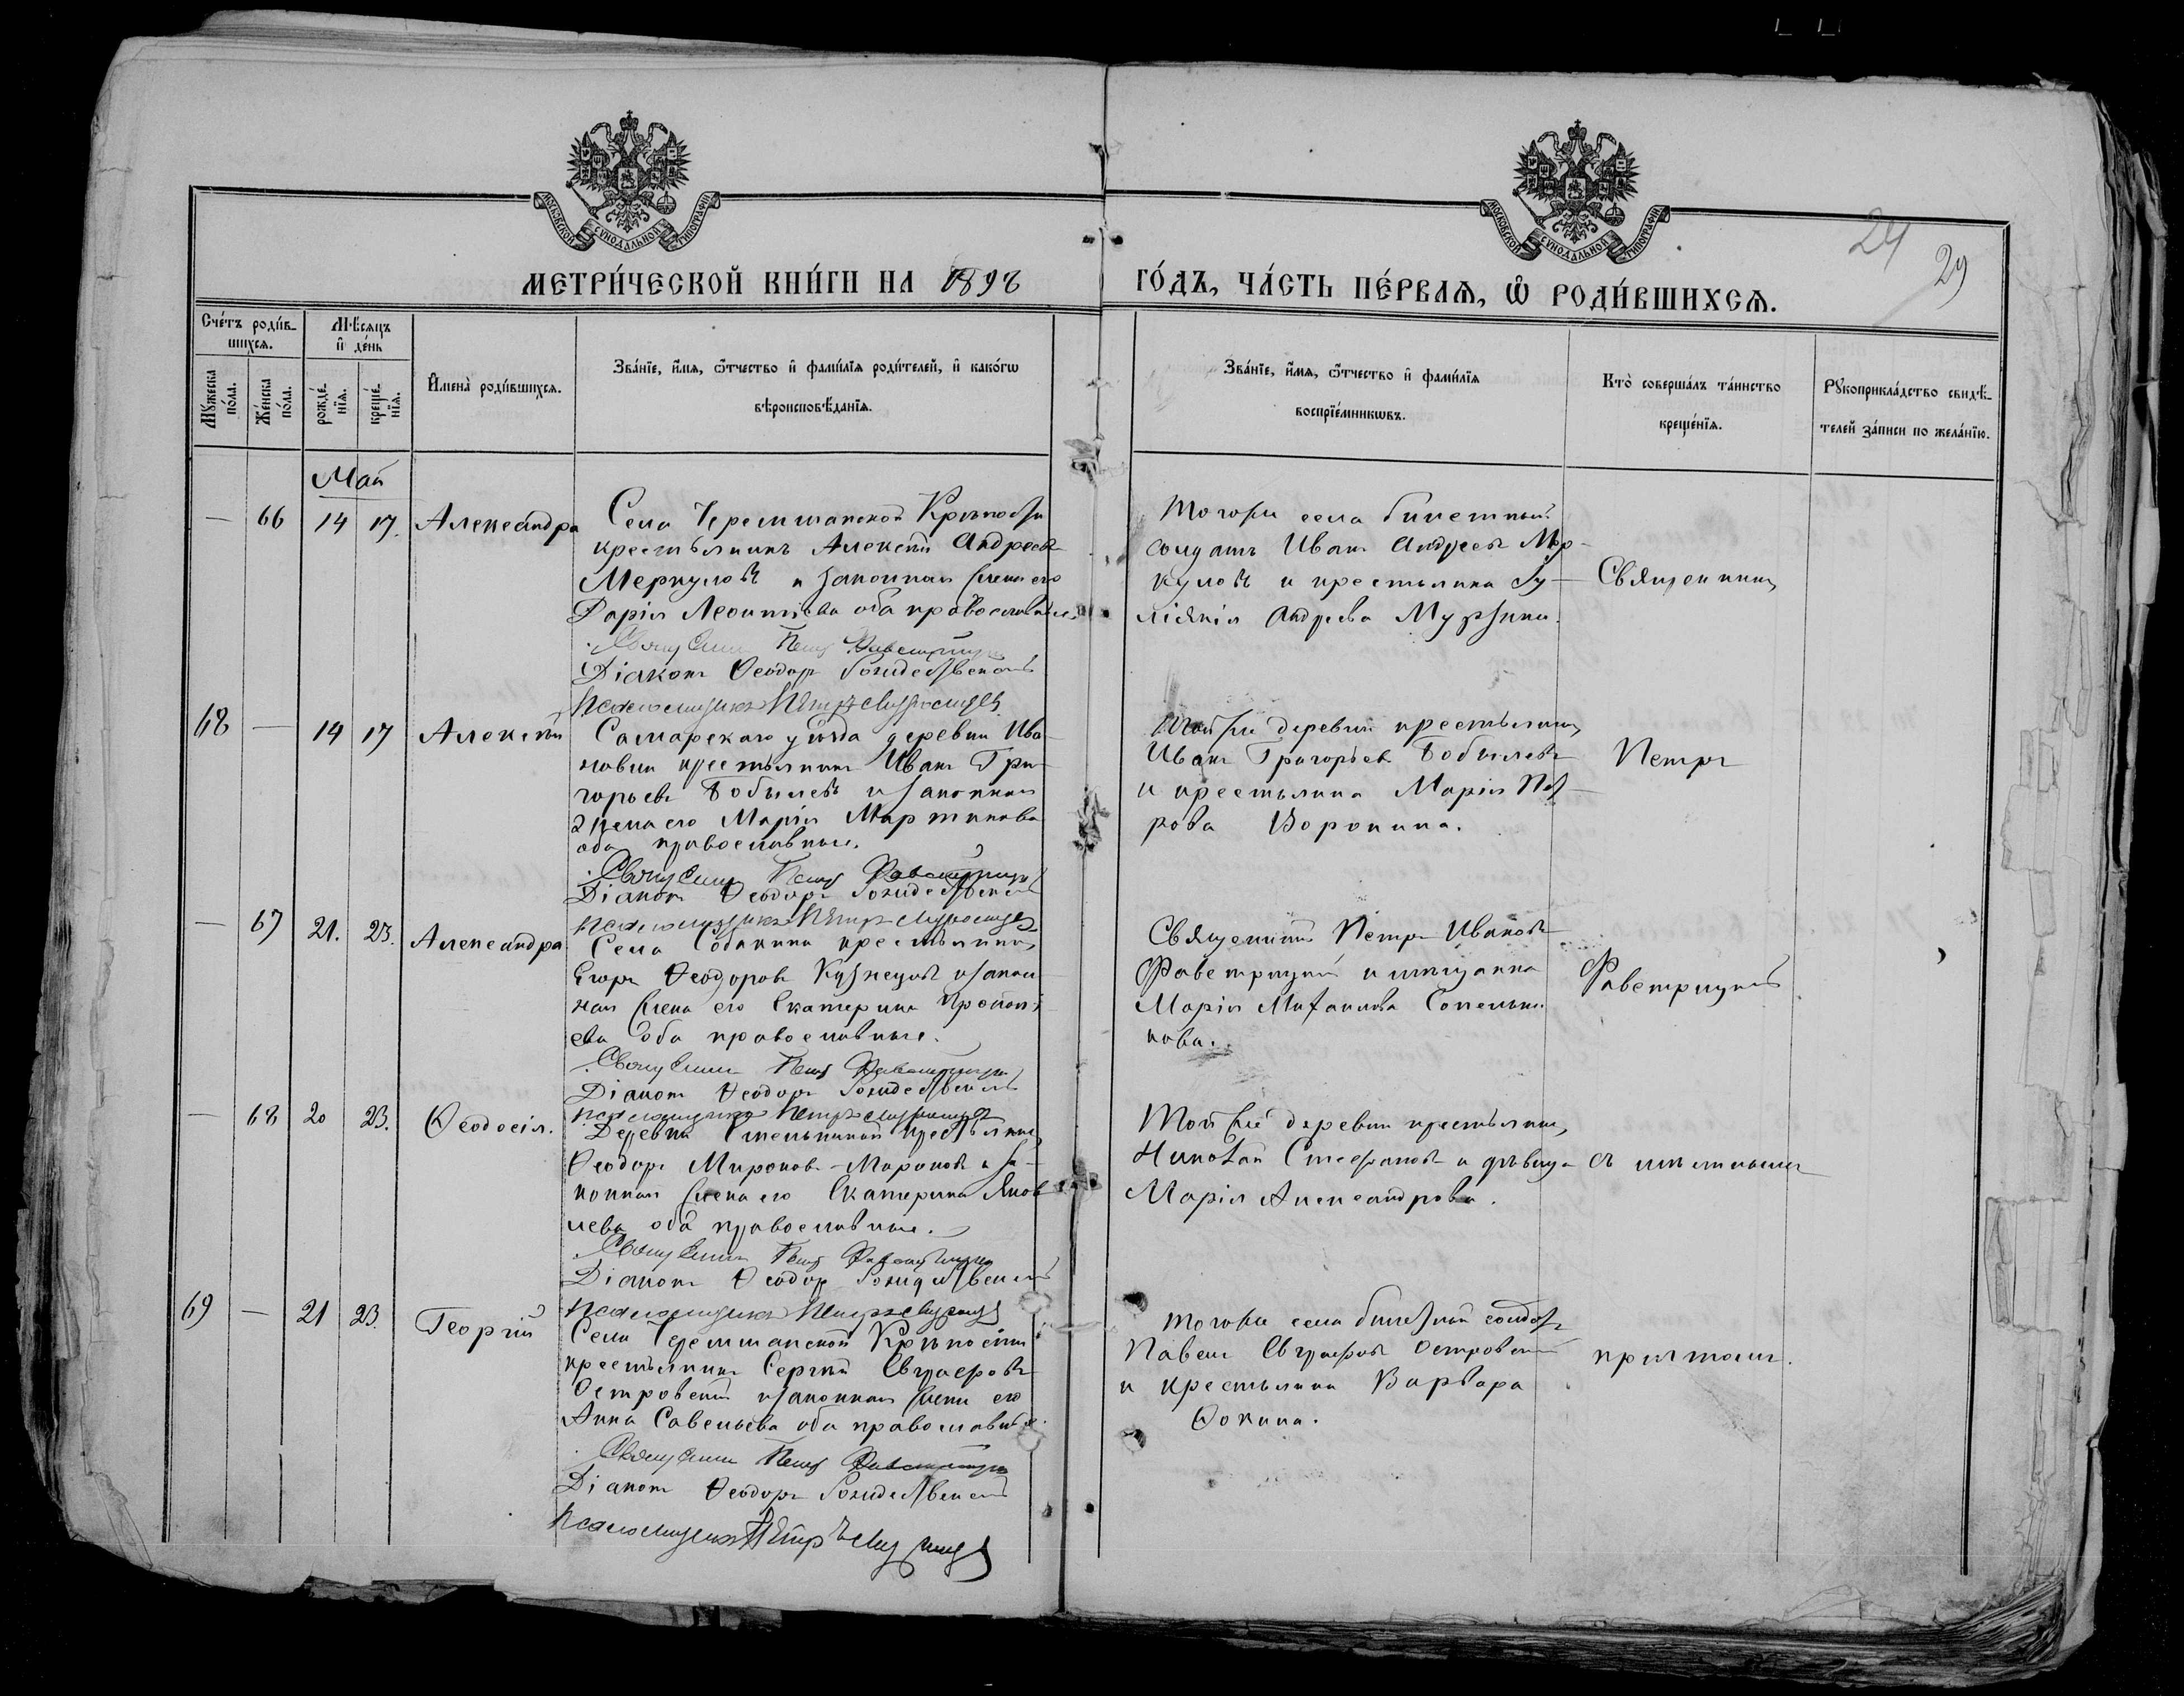 МОСКОВСКОЙ СУНОДАЛЬНОЙ ТИПОГРАФІИ
МОСКОВСКОЙ СУНОДАЛЬНОЙ ТИПОГРАФІИ
24
29
МЕТРИ́ЧЕСКОЙ КНИ́ГИ НА 1898
ГО́ДЪ, ЧА́СТЬ ПЕ́РВАѦ, Ѡ҆ РОДИ́ВШИХСѦ.
Сче́тъ роди́в-
шихсѧ.
Мѣ́сѧцъ
и҆ де́нь
Мꙋ́жеска
по́ла.
Же́нска
по́ла.
рожде́-
нїѧ.
креще́-
нїѧ.
И҆мена̀ роди́вшихсѧ.
Зва́нїе, и҆́мѧ, ѻ҆́тчество и҆ фами́лїѧ роди́телей, и҆ како́гѡ
вѣроисповѣ́данїѧ.
Зва́нїе, и҆́мѧ, ѻ҆́тчество и҆ фами́лїѧ
воспрїе́мникѡвъ.
Кто̀ соверша́лъ та́инство
креще́нїѧ.
Рꙋкоприкла́дство свидѣ́-
телей за́писи по жела́нїю.
Май
— 66 14 17. Александра
Села Черемшанской Крѣпости
крестьянинъ Алексѣй Андреевъ
Меркуловъ и законная жена его
Дарія Леонтіева оба православные
Священникъ Петръ Фаветрицкій
Діаконъ Ѳеодоръ Рождественскій
Псаломщикъ Петръ
Тогоже села билетный
солдатъ Иванъ Андреевъ Мер-
куловъ и крестьянка Іу-
ліянія Андреева Мурзина.
Священникъ
68 — 14 17 Алексѣй
Самарскаго уѣзда деревни Ива-
новки крестьянинъ Иванъ Гри-
горьевъ Бобылевъ и законная
жена его Марія Мартинова
оба православные.
Священникъ Петръ Фаветрицкій
Діаконъ Ѳеодоръ Рождественскій
Псаломщикъ Петръ
Той же деревни крестьянинъ
Иванъ Григорьевъ Бобылевъ
и крестьянка Марія Пет-
рова Воронина.
Петръ
— 67 21. 23. Александра
Села Собакина крестьянинъ
Егоръ Ѳеодоровъ Кузнецовъ и закон-
ная жена его Екатерина Прокопі-
ева оба православные.
Священникъ Петръ Фаветрицкій
Діаконъ Ѳеодоръ Рождественскій
Псаломщикъ Петръ
Священникъ Петръ Ивановъ
Фаветрицкій и мѣщанка
Марія Михаилова Сопельни-
кова.
Фаветрицкій
— 68 20 23. Ѳеодосія.
Деревни крестьянинъ
Ѳеодоръ Мироновъ Мироновъ и за-
конная жена его Екатерина Яков-
лева оба православные.
Священникъ Петръ Фаветрицкій
Діаконъ Ѳеодоръ Рождественскій
Псаломщикъ Петръ
Той же деревни крестьянинъ
Николай Стефановъ и дѣвица
Марія Александрова.
съ
69 — 21 23. Георгій
Села Черемшанской Крѣпости
крестьянинъ Сергѣй Евграфовъ
Островскій и законная жена его
Анна Савельева оба православные.
Священникъ Петръ Фаветрицкій
Діаконъ Ѳеодоръ Рождественскій
Псаломщикъ Петръ
Тогоже села билетный солдатъ
Павелъ Евграфовъ Островскій
и крестьянка Варвара
Ѳокина.
причтомъ.